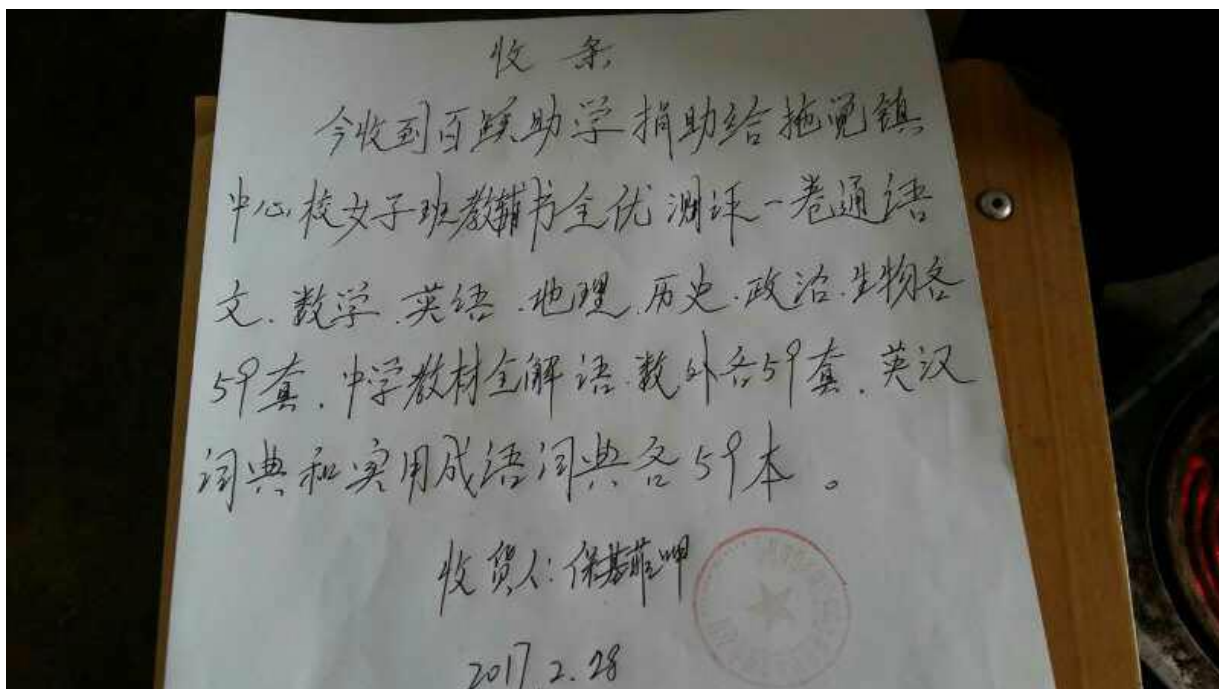 收 条
今收到百联助学捐助给拖觉镇
中心校女子班教辅书全优测评一卷通语
文、数学、英语、地理、历史、政治、生物各
59套、中学教材全解语、数外各59套、英汉
词典和实用成语词典各59本。
收货人:保
2017 2.28